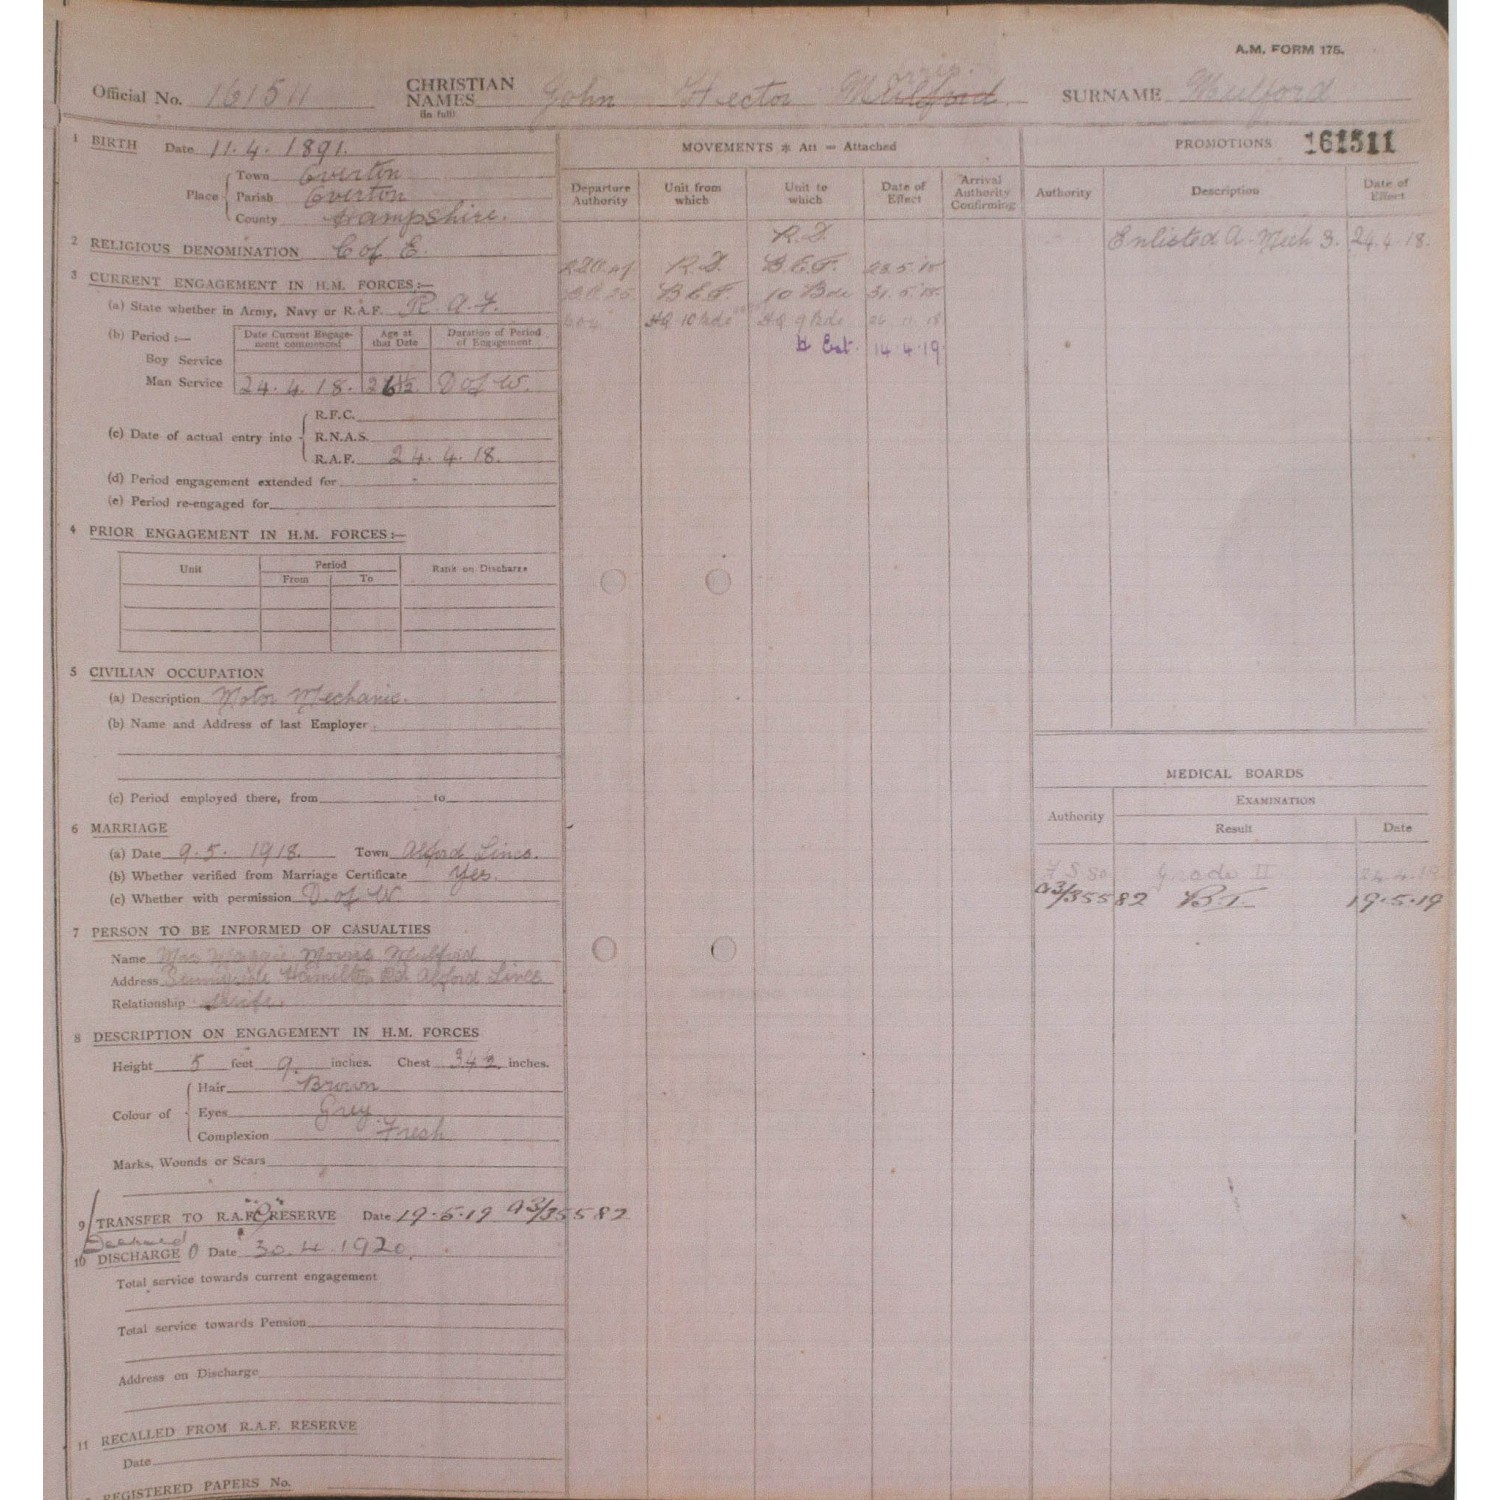 A.M. FORM 175.
Official No. 161511 CHRISTIAN NAMES (in full) John Hector Morris Mulford SURNAME Mulford
161511
1 BIRTH Date 11.4.1891.
Place Town Everton
Parish Everton
County Hampshire.
2 RELIGIOUS DENOMINATION C of E.
3 CURRENT ENGAGEMENT IN H.M. FORCES:—
(a) State whether in Army, Navy or R.A.F. R.A.F.
(b) Period :—
Date Current Engagement commenced Age at that Date Duration of Period of Engagement
Boy Service
Man Service 24.4.18. 26 1/2 D of W.
(c) Date of actual entry into R.F.C.
R.N.A.S.
R.A.F. 24.4.18.
(d) Period engagement extended for
(e) Period re-engaged for
4 PRIOR ENGAGEMENT IN H.M. FORCES:—
Unit Period Rank on Discharge
From To
5 CIVILIAN OCCUPATION
(a) Description Motor Mechanic.
(b) Name and Address of last Employer
(c) Period employed there, from to
6 MARRIAGE
(a) Date 9.5.1918. Town Alford Lincs.
(b) Whether verified from Marriage Certificate Yes.
(c) Whether with permission D of W
7 PERSON TO BE INFORMED OF CASUALTIES
Name Mrs Maggie Morris Mulford
Address Hamilton Rd Alford Lincs
Relationship Wife.
8 DESCRIPTION ON ENGAGEMENT IN H.M. FORCES
Height 5 feet 9 inches. Chest 34½ inches.
Colour of Hair Brown
Eyes Grey
Complexion Fresh
Marks, Wounds or Scars
9 TRANSFER TO R.A.F. "G" RESERVE Date 19.5.19 a3/35582
Deemed
10 DISCHARGE Date 30.4.1920.
Total service towards current engagement
Total service towards Pension
Address on Discharge
11 RECALLED FROM R.A.F. RESERVE
Date
REGISTERED PAPERS No.
MOVEMENTS * Att = Attached
Departure Authority Unit from which Unit to which Date of Effect Arrival Authority Confirming
R.D.
R.D. B.E.F. 28.5.18
B.E.F. 10 Bde 31.5.18
HQ 10 Bde HQ 9 Bde 26.11.18
H Est. 14.4.19
PROMOTIONS
Authority Description Date of Effect
Enlisted A. Mech 3. 24.4.18.
MEDICAL BOARDS
Authority EXAMINATION
Result Date
Grade II 24.4.18.
a3/35582 B.I. 19.5.19